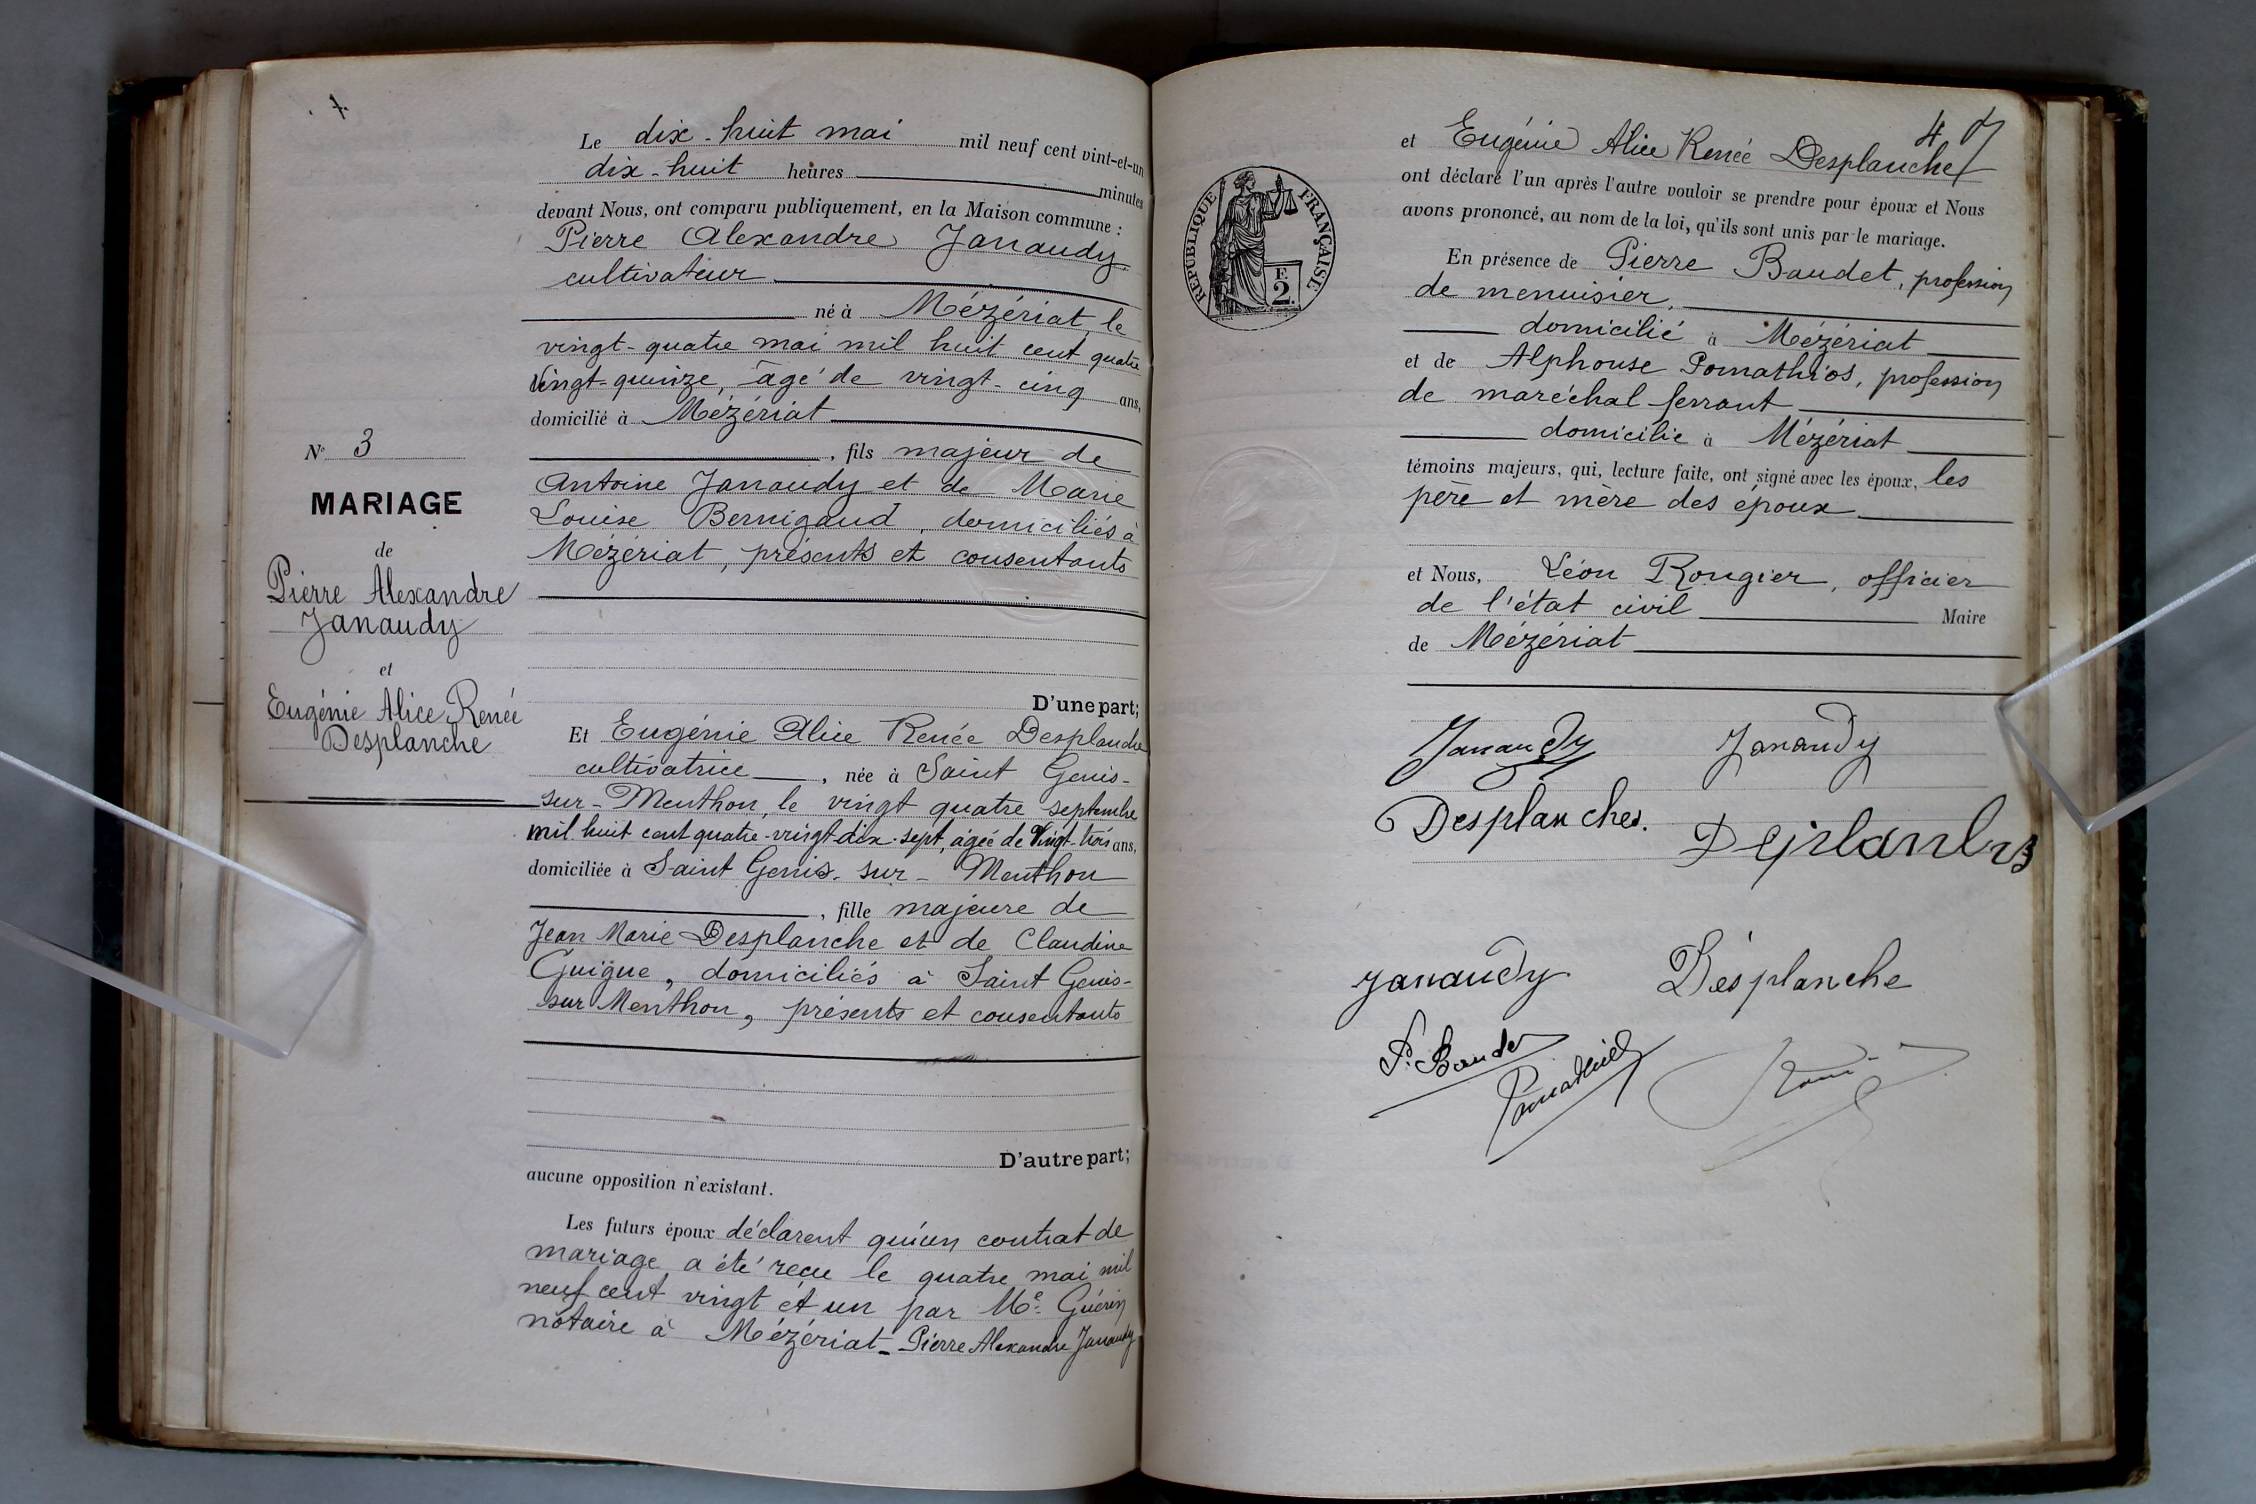 7.
Le dix-huit mai mil neuf cent vint-et-un
dix-huit heures minutes
devant Nous, ont comparu publiquement, en la Maison commune :
Pierre Alexandre Janaudy
cultivateur
né à Mézériat, le
vingt-quatre mai mil huit cent quatre
vingt-quinze, âgé de vingt-cinq ans,
domicilié à Mézériat
, fils majeur de
Antoine Janaudy et de Marie
Louise Bernigaud, domiciliés à
Mézériat, présents et consentants
D'une part;
Et Eugénie Alice Renée Desplanche
cultivatrice , née à Saint Genis-
sur-Menthon, le vingt quatre septembre
mil huit cent quatre-vingt dix-sept, âgée de vingt-trois ans,
domiciliée à Saint Genis-sur-Menthon
, fille majeure de
Jean Marie Desplanche et de Claudine
Guigue, domiciliés à Saint Genis-
sur Menthon, présents et consentants
D'autre part;
aucune opposition n'existant.
Les futurs époux déclarent qu'un contrat de
mariage a été reçu le quatre mai mil
neuf cent vingt et un par Me Guérin
notaire à Mézériat - Pierre Alexandre Janaudy
No 3
MARIAGE
de
Pierre Alexandre
Janaudy
et
Eugénie Alice Renée
Desplanche
4
et Eugénie Alice Renée Desplanche
ont déclaré l'un après l'autre vouloir se prendre pour époux et Nous
avons prononcé, au nom de la loi, qu'ils sont unis par le mariage.
En présence de Pierre Baudet, profession
de menuisier,
domicilié à Mézériat
et de Alphonse Pomathios, profession
de maréchal ferrant
domicilié à Mézériat
témoins majeurs, qui, lecture faite, ont signé avec les époux, les
père et mère des époux
et Nous, Léon Rougier, officier
de l'état civil Maire
de Mézériat
Janaudy Janaudy
Desplanches.
Janaudy Desplanche
P. Baudet
RÉPUBLIQUE FRANÇAISE
F.
2.